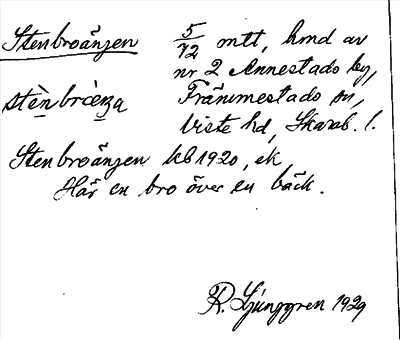 Stenbroängen 5/72 mtl, hmd av
nr 2 Annestads by,
stèn bròeŋa Främmestads sn,
Viste hd, Skarab. l.
Stenbroängen kb 1920, ek
Här en bro över en bäck.
R. Ljunggren 1929